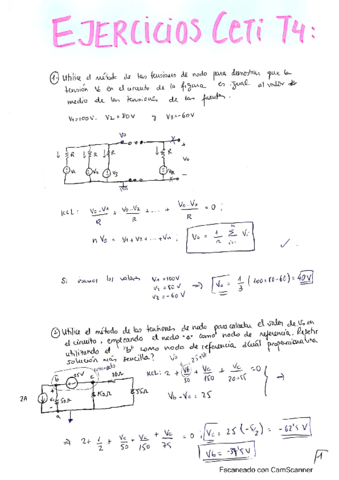 EJERCICIOS CETI T4:
① Utilice el método de las tensiones de nodo para demostrar que la
tensión Vo en el circuito de la figura es igual al valor
medio de las tensiones de las fuentes.
V1=100V. V2=80V y V3=-60V
Vo
R R R R
Vo
V1 V2 V3
KCL: Vo-V1/R + Vo-V2/R + ... + Vo-Vn/R = 0;
nVo = V1+V2+...+Vn; Vo = 1/n Σ Vi
Si vamos los valores V1=100V
V2=80V
V3=-60V
→ Vo = 1/3 (100+80-60) = 40V
② Utilice el método de las tensiones de nodo para calcular el valor de Vo en
el circuito, empleando el nodo "a" como nodo de referencia. Repetir
utilizando el "b" como nodo de referencia ¿Cuál proporciona una
solución más sencilla?
2A
KCL: 2 + Vb/50 + Vc/150 + Vc/20+55 = 0
Vb-Vc = 25
⇒ 2 + 1/2 + Vc/50 + Vc/150 + Vc/75 = 0
Escaneado con CamScanner